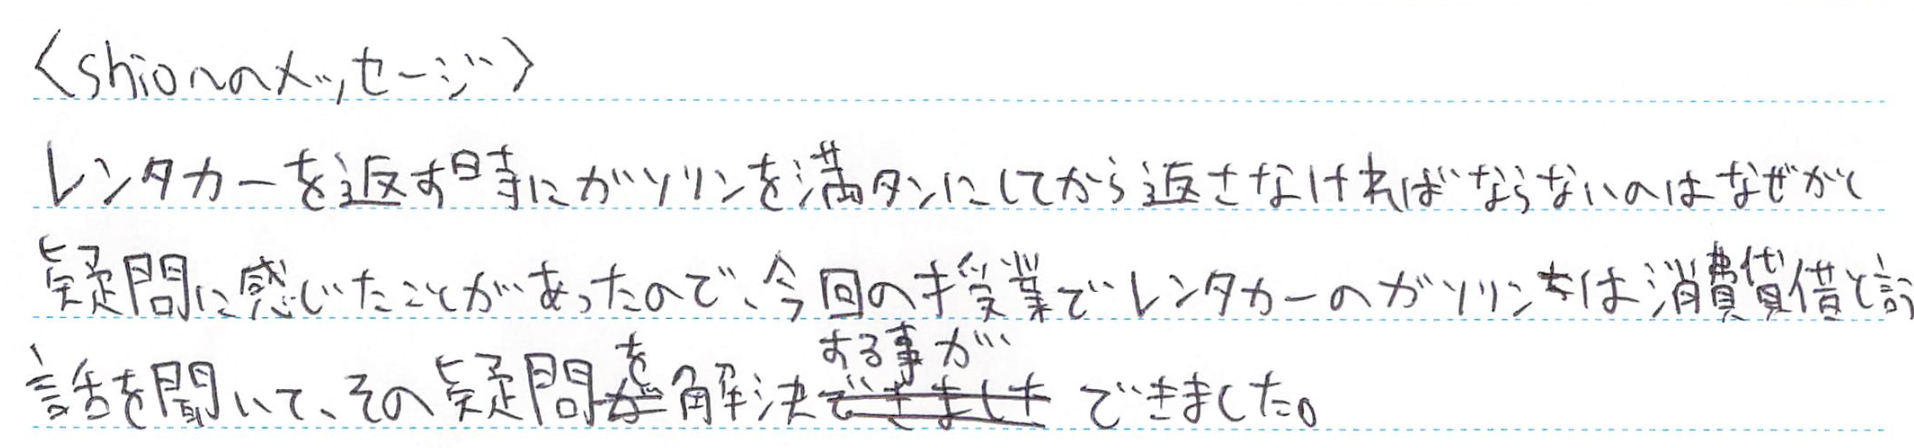 <shionへのメッセージ>
レンタカーを返す時にガソリンを満タンにしてから返さなければならないのはなぜかと
疑問に感じたことがあったので、今回の授業でレンタカーのガソリンは消費貸借と言う
話を聞いて、その疑問を解決する事ができました。